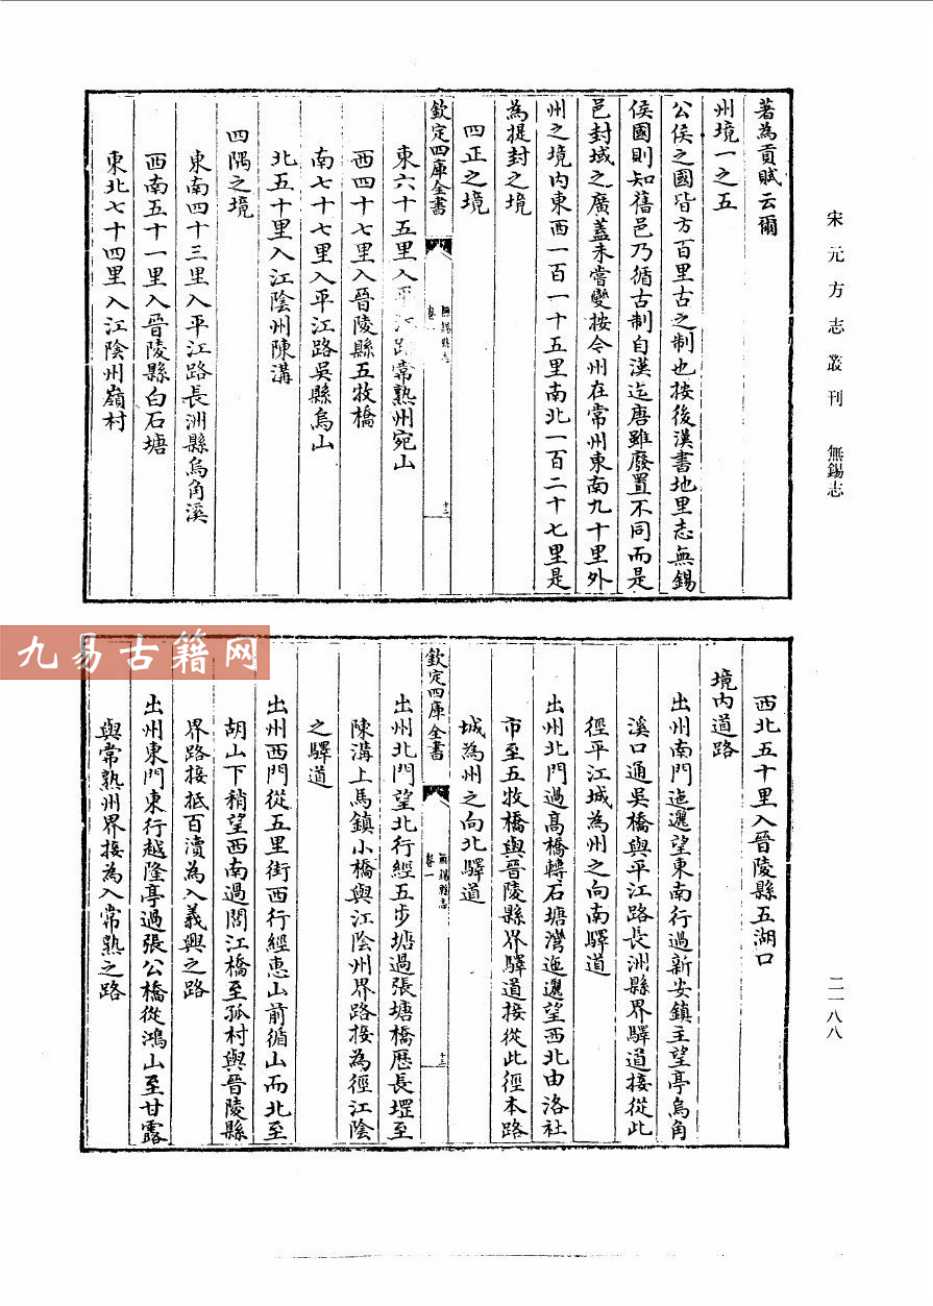 宋元方志叢刊 無錫志
著為貢賦云爾
州境一之五
公侯之國皆方百里古之制也按後漢書地里志無錫
侯國則知舊邑乃循古制自漢迄唐雖廢置不同而是
邑封域之廣蓋未嘗變按今州在常州東南九十里外
州之境内東西一百一十五里南北一百二十七里是
為提封之境
四正之境
欽定四庫全書 無錫縣志 卷一 十二
東六十五里入平江路常熟州宛山
西四十七里入晉陵縣五牧橋
南七十七里入平江路吳縣烏山
北五十里入江陰州陳溝
四隅之境
東南四十三里入平江路長洲縣烏角溪
西南五十一里入晉陵縣白石塘
東北七十四里入江陰州嶺村
西北五十里入晉陵縣五湖口
境内道路
出州南門迤邐望東南行過新安鎮主望亭烏角
溪口通吳橋與平江路長洲縣界驛道接從此
徑平江城為州之向南驛道
出州北門過高橋轉石塘灣迤邐望西北由洛社
市至五牧橋與晉陵縣界驛道接從此徑本路
城為州之向北驛道
欽定四庫全書 無錫縣志 卷一 十三
出州北門望北行經五步塘過張塘橋歷長堽至
陳溝上馬鎮小橋與江陰州界路接為徑江陰
之驛道
出州西門從五里街西行經惠山前循山而北至
胡山下稍望西南過閭江橋至孤村與晉陵縣
界路接抵百瀆為入義興之路
出州東門東行越隆亭過張公橋從鴻山至甘露
與常熟州界接為入常熟之路
二一八八
九易古籍网